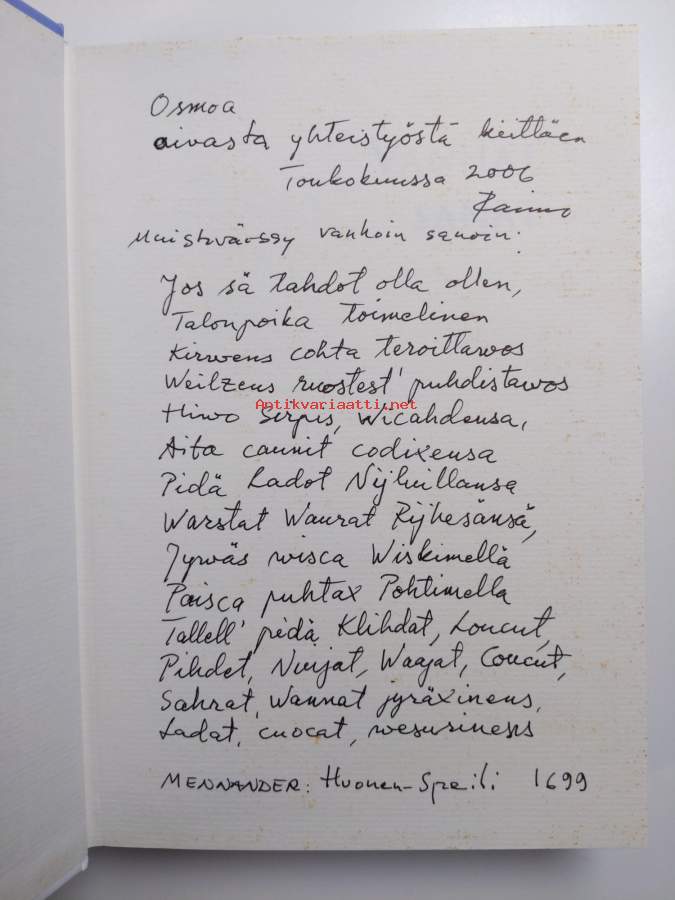 Osmoa
oivasta yhteistyöstä kiittäen
Toukokuussa 2006
Raimo
vanhoin sanoin:
Jos sä tahdot olla ollen,
Talonpoika toimelinen
Kirwens cohta teroittawos
Weitzens ruostest' puhdistawos
Hiwo Serpis, Wicahdensa,
Aita caunit codixensa
Pidä Ladot Nijtuillansa
Warstat Waurat Rijhesänsä,
Jywäs wisca Wiskimellä
Paisca puhtax Pohtimella
Tallell' pidä Klihdat, Loucut,
Pihdet, Nuijat, Waajat, Coucut,
Sahrat, Wannat jyräxinens,
Ladat, cuocat, wesurinens
MENNANDER: Huonen-Speili 1699
Antikvariaatti.net